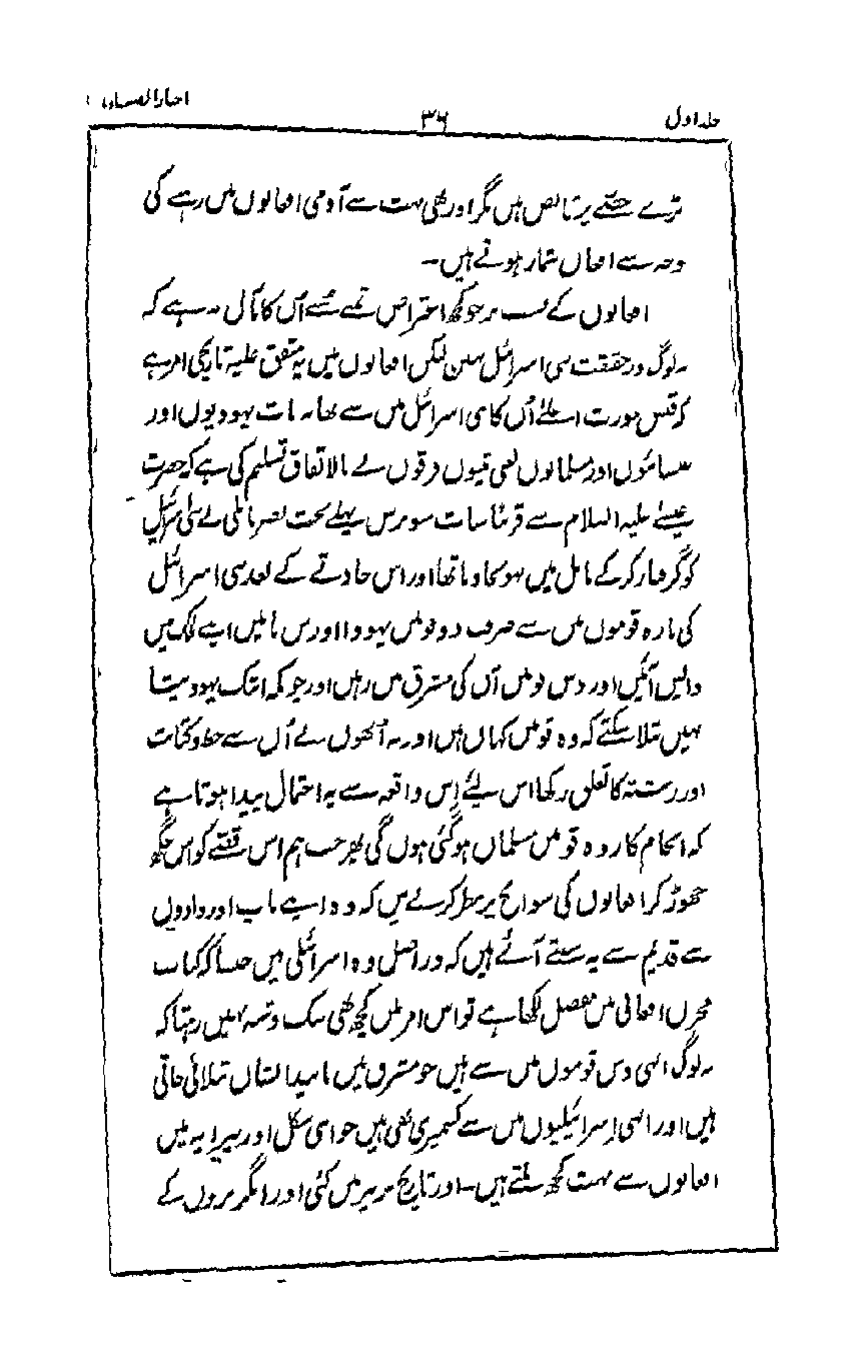 جلد اول
۳۶
اخبار الصنادید
بڑے حصّے پر قابض ہیں مگر اور بھی بہت سے آدمی افغانوں میں رہنے کی
وجہ سے افغان شمار ہوتے ہیں۔
افغانوں کے نسب پر جو کچھ اعتراض تھے اُس کا مآل یہ ہے کہ
یہ لوگ درحقیقت بنی اسرائیل نہیں لیکن افغانوں میں یہ متفق علیہ تاریخی امر ہے
کہ قیس مورث اعلیٰ اُن کا بنی اسرائیل میں سے تھا یہ بات یہودیوں اور
عیسائیوں اور مسلمانوں یعنی تینوں فرقوں نے بالاتفاق تسلیم کی ہے کہ حضرت
عیسےٰ علیہ السلام سے قریباً سات سو برس پہلے بخت نصر بابلی نے بنی اسرائیل
کو گرفتار کر کے بابل میں پہونچا دیا تھا اور اس حادثے کے بعد بنی اسرائیل
کی بارہ قوموں میں سے صرف دو قومیں یہودا اور بن یامین اپنے ملک میں
واپس آئیں اور دس قومیں اُن کی مشرق میں رہیں اور چونکہ ابتک یہود پتا
نہیں بتلا سکتے کہ وہ قومیں کہاں ہیں اور نہ اُنھوں نے اُن سے خط و کتابت
اور رشتہ کا تعلق رکھا اس لئے اِس واقعہ سے یہ احتمال پیدا ہوتا ہے
کہ انجام کار وہ قومیں مسلمان ہو گئی ہوں گی پھر جب ہم اس قصّے کو اس جگہ
چھوڑ کر افغانوں کی سوانح پر نظر کرتے ہیں کہ وہ اپنے باپ اور دادوں
سے قدیم سے یہ سنتے آئے ہیں کہ دراصل وہ اسرائیلی ہیں جیسا کہ کتاب
مخزن افغانی میں مفصل لکھا ہے تو اس امر میں کچھ بھی شک و شبہ نہیں رہتا کہ
یہ لوگ انہی دس قوموں میں سے ہیں جو مشرق میں ناپید النشان بتلائی جاتی
ہیں اور انہی اِسرائیلیوں میں سے کشمیری بھی ہیں جو اپنی شکل اور پیرایہ میں
افغانوں سے بہت کچھ ملتے ہیں۔ اور تاریخ برنیر میں کئی اور انگریزوں کے